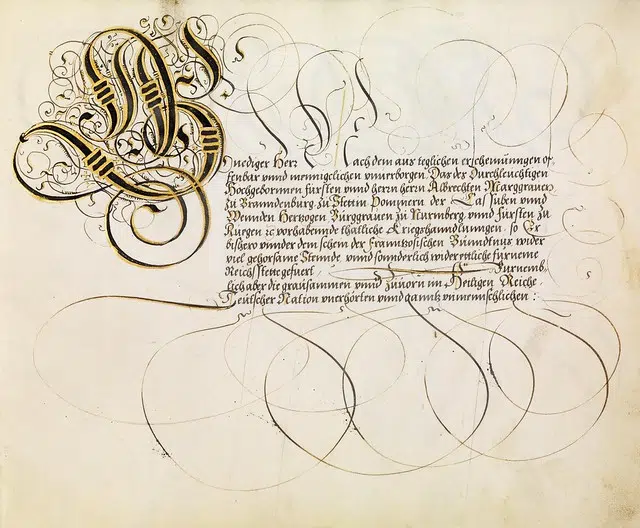 Gnediger Herr Nach dem aus teglichen erscheinungen of
fenbar vnnd menniglichen vnuerborgen, Das des Durchleuchtigen
Hochgebornnen fursten vnnd herrn herrn Albrechten Marggrauen
zu Branndenburg, zu Stettin Pommern der Cassuben vnnd
Wennden Hertzogen Burggrauen zu Nurmberg vnnd fürsten zu
Rugen ꝛc vorhabennde thatliche Kriegshanndlunngen, so Er
bishero vnnder dem schein der Frantzosischen Bundtnus wider
viel gehorsame Stennde vnnd sonnderlich wider ettliche furneme
Reichsstette gefuert, Furnemb
lich aber die grausammen vnnd zuuorn im Heiligen Reiche
Teutscher Nation vnerhörten vnnd ganntz vnmenschlichen :